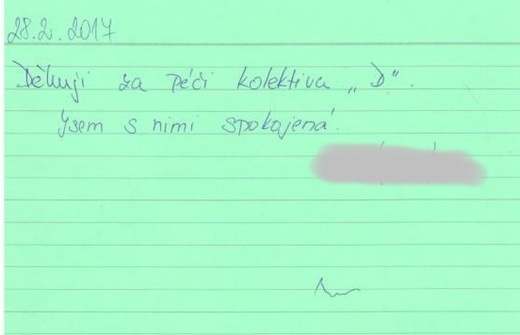 28.2.2017
Děkuji za péči kolektivu „D“.
Jsem s nimi spokojená.